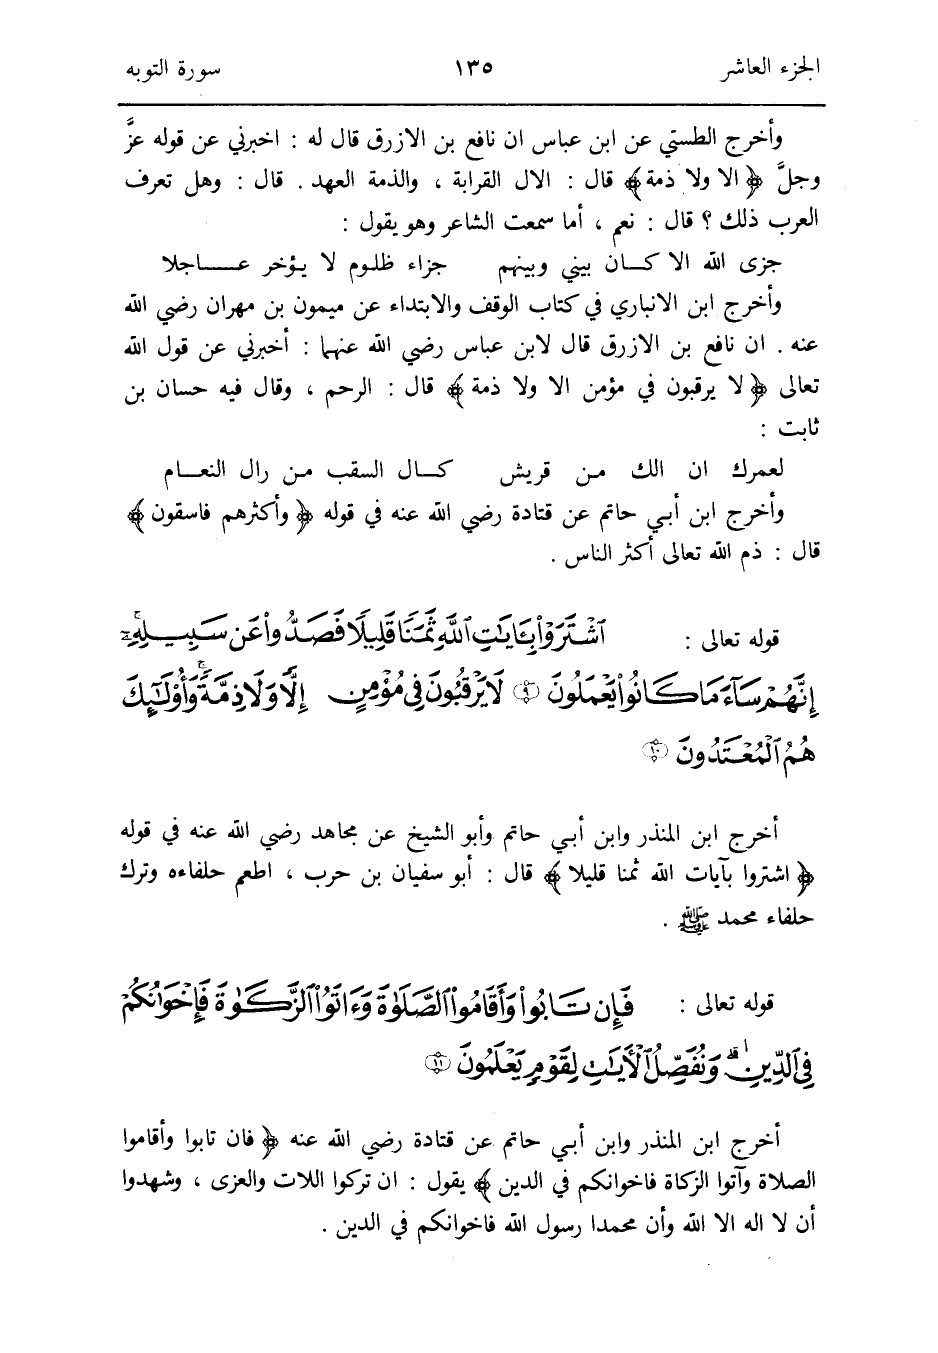 الجزء العاشر ١٣٥ سورة التوبه
وأخرج الطستي عن ابن عباس ان نافع بن الازرق قال له : اخبرني عن قوله عزَّ
وجلَّ ﴿ الا ولا ذمة ﴾ قال : الال القرابة ، والذمة العهد . قال : وهل تعرف
العرب ذلك ؟ قال : نعم ، أما سمعت الشاعر وهو يقول :
جزى الله الا كـان بيني وبينهم جزاء ظلوم لا يؤخر عـاجلا
وأخرج ابن الانباري في كتاب الوقف والابتداء عن ميمون بن مهران رضي الله
عنه . ان نافع بن الازرق قال لابن عباس رضي الله عنهما : أخبرني عن قول الله
تعالى ﴿ لا يرقبون في مؤمن الا ولا ذمة ﴾ قال : الرحم ، وقال فيه حسان بن
ثابت :
لعمرك ان الك من قريش كـال السقب من رال النعـام
وأخرج ابن أبي حاتم عن قتادة رضي الله عنه في قوله ﴿ وأكثرهم فاسقون ﴾
قال : ذم الله تعالى أكثر الناس .
قوله تعالى : ٱشْتَرَوْا۟ بِـَٔايَـٰتِ ٱللَّهِ ثَمَنًا قَلِيلًا فَصَدُّوا۟ عَن سَبِيلِهِۦٓ ۚ
إِنَّهُمْ سَآءَ مَا كَانُوا۟ يَعْمَلُونَ ۝٩ لَا يَرْقُبُونَ فِى مُؤْمِنٍ إِلًّا وَلَا ذِمَّةً ۚ وَأُو۟لَـٰٓئِكَ
هُمُ ٱلْمُعْتَدُونَ ۝١٠
أخرج ابن المنذر وابن أبي حاتم وأبو الشيخ عن مجاهد رضي الله عنه في قوله
﴿ اشتروا بآيات الله ثمنا قليلا ﴾ قال : أبو سفيان بن حرب ، اطعم حلفاءه وترك
حلفاء محمد ﷺ .
قوله تعالى : فَإِن تَابُوا۟ وَأَقَامُوا۟ ٱلصَّلَوٰةَ وَءَاتَوُا۟ ٱلزَّكَوٰةَ فَإِخْوَٰنُكُمْ
فِى ٱلدِّينِ ۗ وَنُفَصِّلُ ٱلْـَٔايَـٰتِ لِقَوْمٍ يَعْلَمُونَ ۝١١
أخرج ابن المنذر وابن أبي حاتم عن قتادة رضي الله عنه ﴿ فان تابوا وأقاموا
الصلاة وآتوا الزكاة فاخوانكم في الدين ﴾ يقول : ان تركوا اللات والعزى ، وشهدوا
أن لا اله الا الله وأن محمدا رسول الله فاخوانكم في الدين .